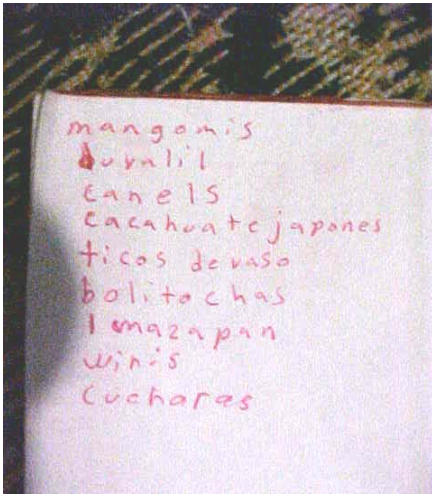 mangomis
duvalil
canels
cacahuate japones
ticos de vaso
bolitochas
1 mazapan
winis
cucharas